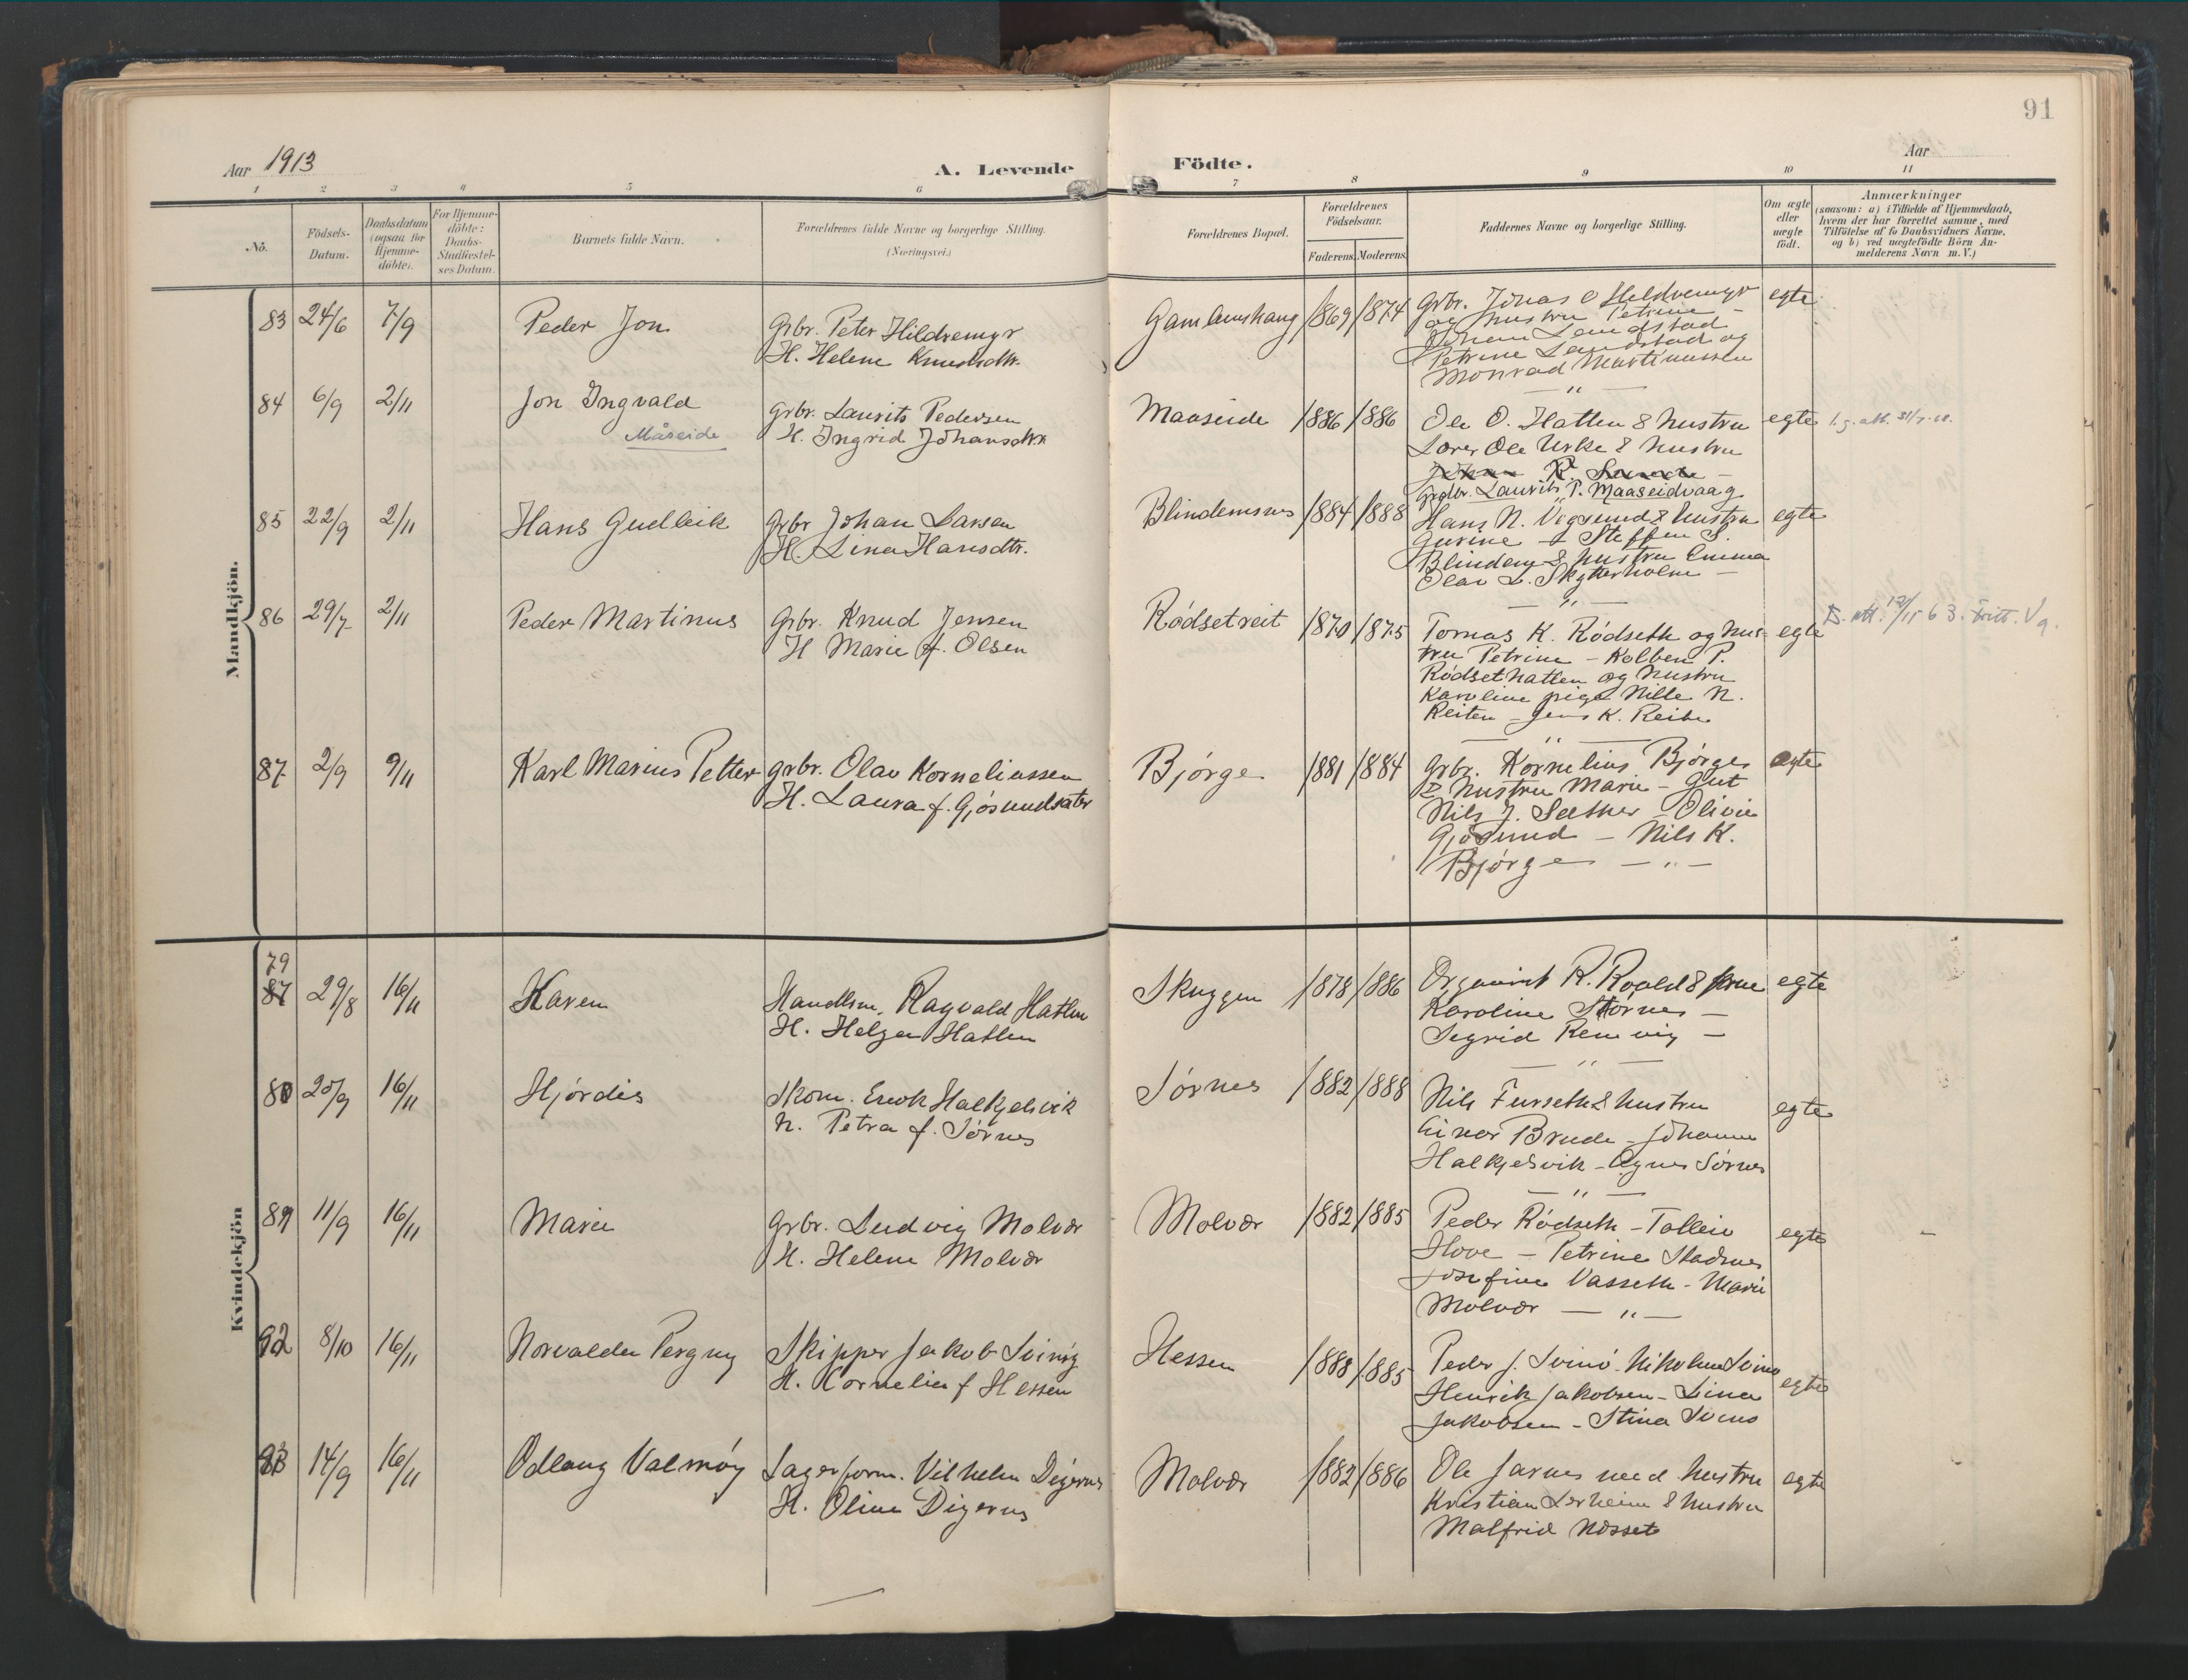 91
Aar 1913
A. Levende
Födte.
Aar
1 2 3 4 5 6 7 8 9 10 11
No.
Födsels-
Datum.
Daabsdatum
(ogsaa for
Hjemme-
döbte).
For Hjemme-
döbte:
Daabs-
Stadfæstel-
ses Datum.
Barnets fulde Navn.
Forældrenes fulde Navne og borgerlige Stilling.
(Næringsvei.)
Forældrenes Bopæl.
Forældrenes
Födselsaar.
Faderens. Moderens.
Faddernes Navne og borgerlige Stilling.
Om ægte
eller
uægte
födt.
Anmærkninger
(saasom: a) i Tilfælde af Hjemmedaab,
hvem der har forrettet samme, med
Tilföielse af to Daabsvidners Navne,
og b) ved uægtefödte Börn An-
melderens Navn m. V.)
Mandkjön.
83 24/6 7/9 Peder Jon
Grbr. Peter Hildremyr
H. Helene Knudsdtr.
Gamlemshaug 1869 1874
Grbr. Jonas O Hildremyr
og hustru Petrine -
Johan Landstad
Petrine Landstad og
Monrad Martinussen
egte
84 6/9 2/11 Jon Ingvald
Måseide
Grbr. Laurits Pedersen
H. Ingrid Johansdtr
Maaseide 1886 1886
Ole O. Hatlen & hustru
Lærer Ole Urke & hustru
Grdbr. Laurits P. Maaseidvaag
egte
85 22/9 2/11 Hans Gudleik
Grbr Johan Larsen
H. Lina Hansdtr.
Blindemsnes 1884 1888
Hans N. Vegsund & hustru
Gurine - Steffen S.
Blindem & hustru Emma
Olav L. Skytterholm -
egte
86 29/7 2/11 Peder Martinus
Grbr. Knud Jensen
H Marie f. Olsen
Rödsetreit 1870 1875
Tomas K. Rödseth og hus-
tru Petrine - Kolben P.
Rödsethatlen og hustru
Karoline pige Nille N.
Reiten - Jens K. Reite
egte
87 2/9 9/11 Karl Marius Petter
grbr. Olav Korneliussen
H. Laura f. Gjösundsæter
Bjørge 1881 1884
Grbr. Kornelius Bjørge
& hustru Marie - Gut
Nils J. Sæther - Olivie
Gjösund - Nils K.
Bjørge - " -
egte
Kvindekjön
79
87 29/8 16/11 Karen
Handlsm. Ragvald Hatlen
H. Helga Hatlen
Skuggen 1878 1886
Organist R. Roald & frue
Karoline Störnes -
Sigrid Remvig -
egte
80 20/9 16/11 Hjördis
Skom. Enok Halkjelsvik
H. Petra f. Sörnes
Sörnes 1882 1888
Nils Furseth & hustru
Einar Brude - Johanne
Halkjelsvik - Agnes Sörnes
egte
89 11/9 16/11 Marie
Grbr. Ludvig Molvær
H. Helene Molvær
Molvær 1882 1885
Peder Rödseth - Talleiv
Hove - Petrine Stadsnes
Josefine Vasseth - Marie
Molvær - " -
egte
92 8/10 16/11 Norvalda Pergny
Skipper Jakob Svinö
H. Cornelia f Hessen
Hessen 1888 1885
Peder J. Svinö - Nikoline Svinö
Henrik Jakobsen - Lina
Jakobsen - Stina Svinö
egte
93 14/9 16/11 Odlaug Valmöy
Lagerform. Vilhelm Digernes
H. Oline Digernes
Molvær 1882 1886
Ole Jarnes med hustru
Kristian Lerheim & hustru
Malfrid Nesset
egte